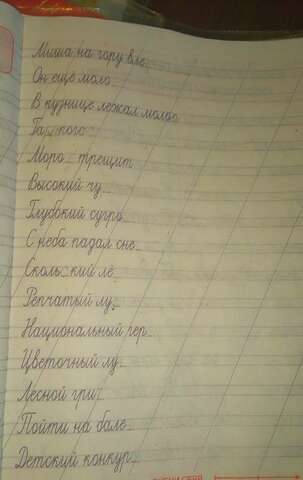 Миша на гору вле
Он ещё моло
В кузнице лежал молоо
Га пого
Моро трещит
Высокий чу
Глубокий сугро
С неба падал сне
Сколь кий лё
Репчатый лу
Национальный гер
Цветочный лу
Лесной гри
Пойти на бале
Детский конкур